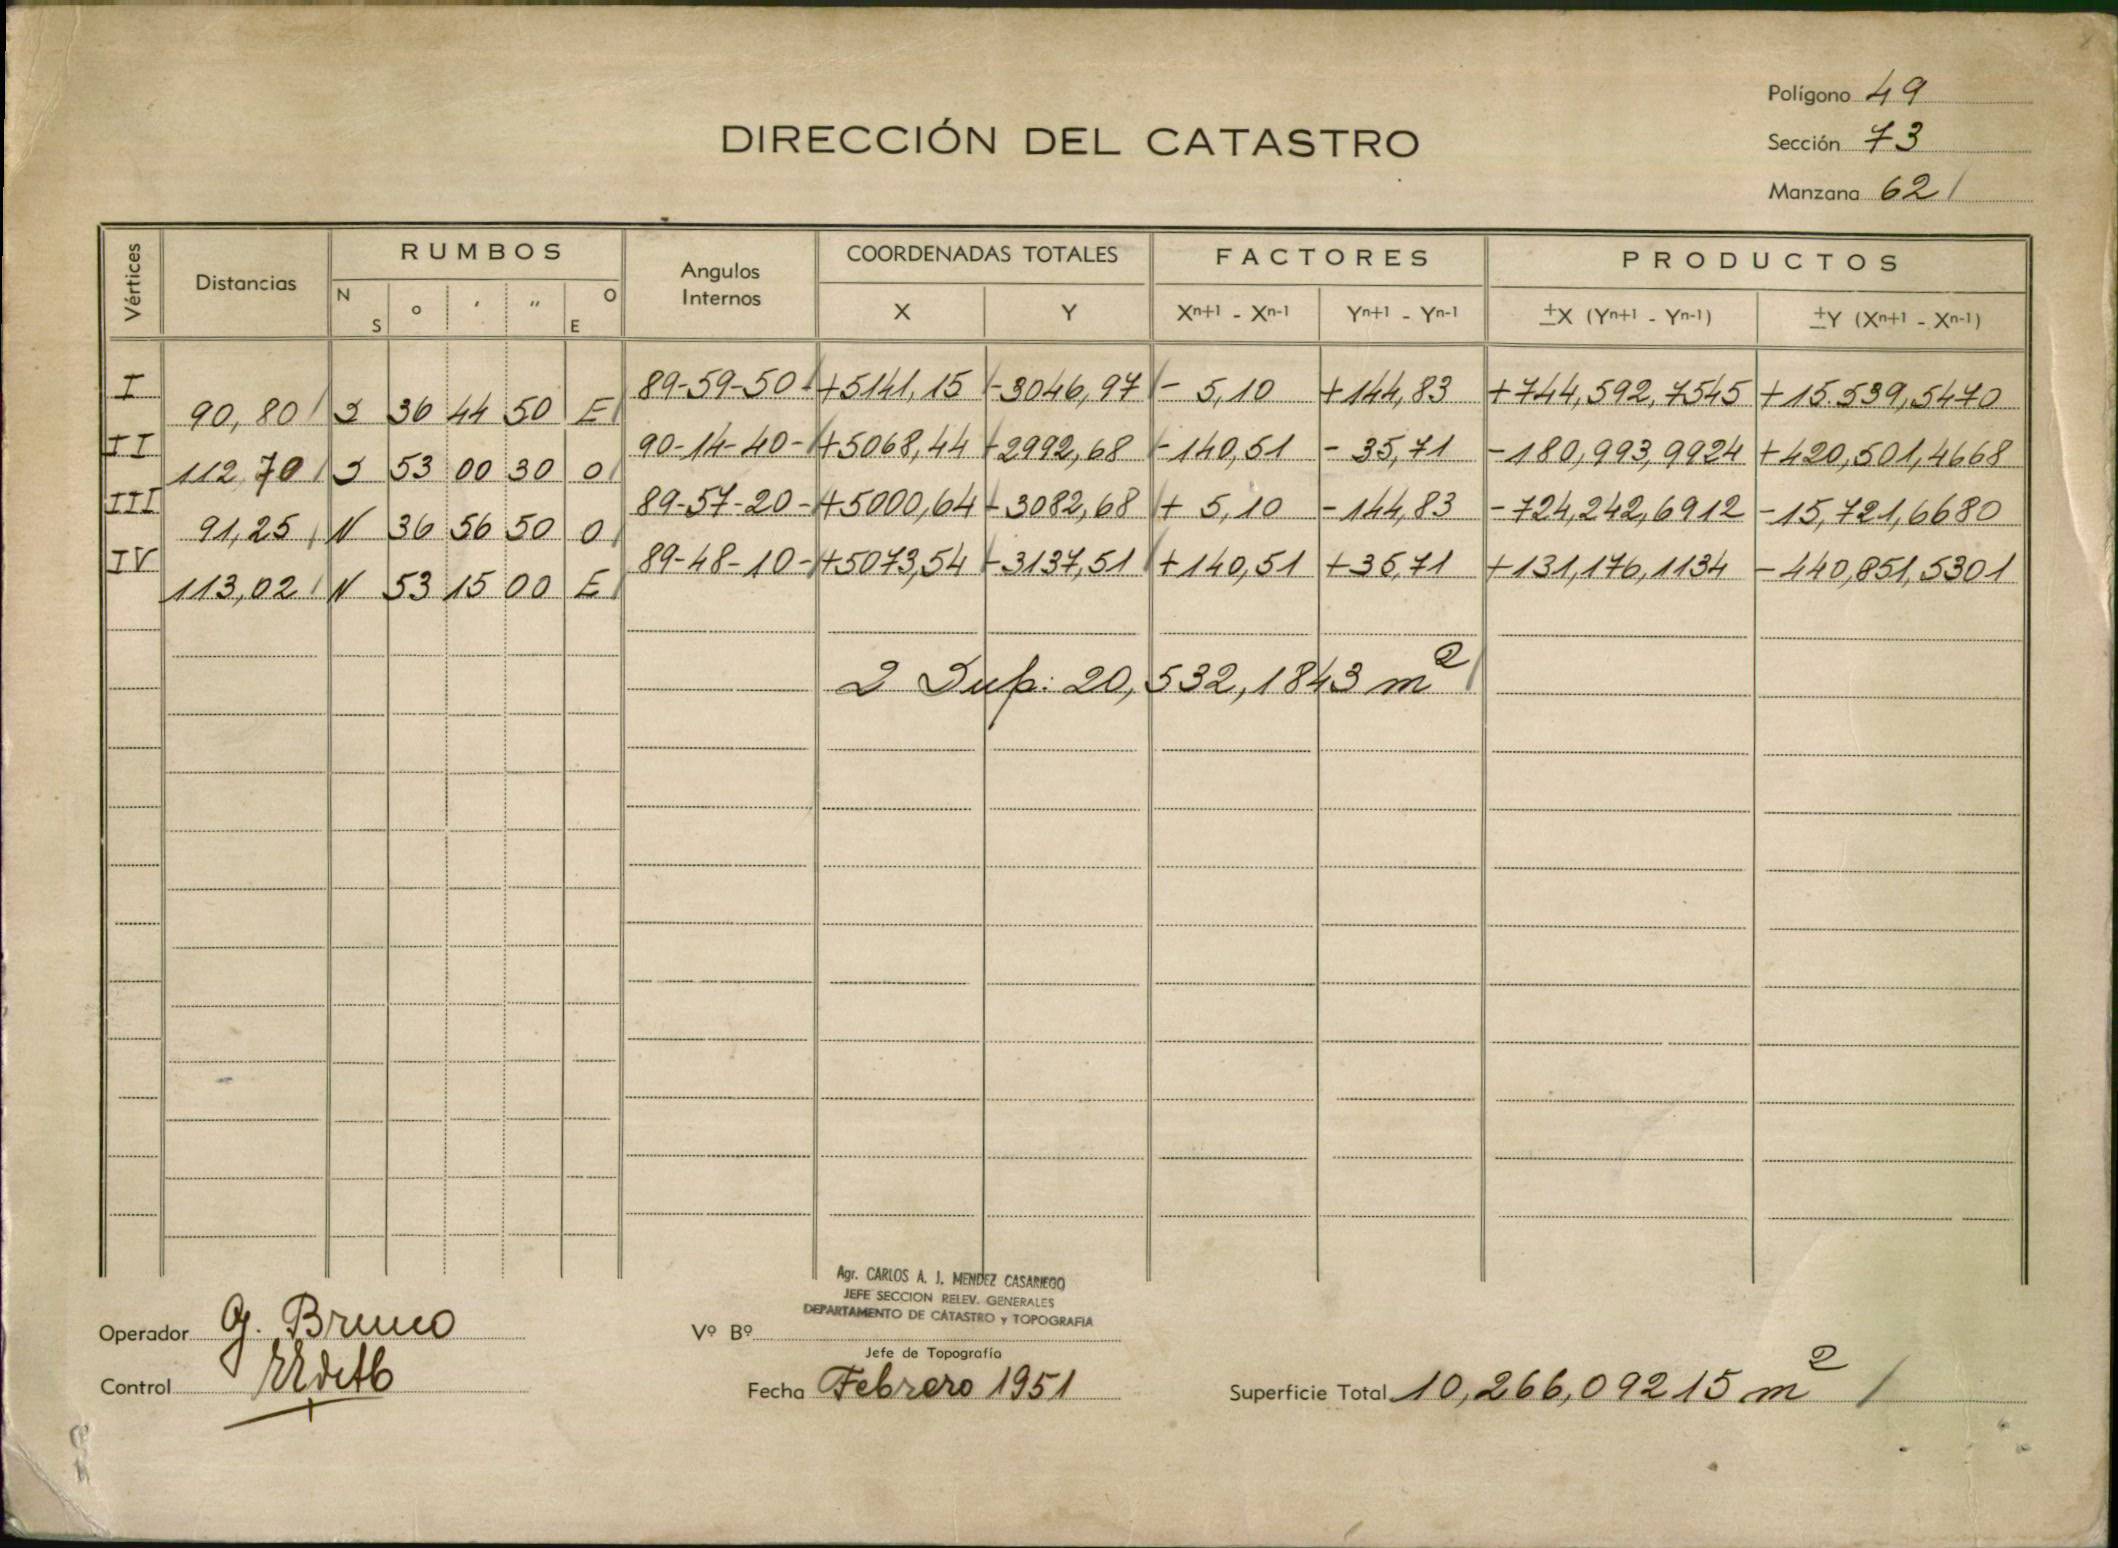 Polígono 49
DIRECCIÓN DEL CATASTRO
Sección 73
Manzana 62
Vértices Distancias RUMBOS Angulos Internos COORDENADAS TOTALES FACTORES PRODUCTOS
N S o ' " O E X Y Xn+1 - Xn-1 Yn+1 - Yn-1 ±X (Yn+1 - Yn-1) ±Y (Xn+1 - Xn-1)
I 89-59-50 +5141,15 -3046,97 - 5,10 +144,83 +744,592,7545 +15.539,5470
90,80 S 36 44 50 E
II 90-14-40- +5068,44 -2992,68 -140,51 - 35,71 -180,993,9924 +420,501,4668
112,70 S 53 00 30 O
III 89-57-20- +5000,64 -3082,68 + 5,10 -144,83 -724,242,6912 -15,721,6680
91,25 N 36 56 50 O
IV 89-48-10- +5073,54 -3137,51 +140,51 +35,71 +131,176,1134 -440,851,5301
113,02 N 53 15 00 E
2 Sup: 20,532,1843 m2
Agr. CARLOS A. J. MENDEZ CASARIEGO
JEFE SECCION RELEV. GENERALES
DEPARTAMENTO DE CATASTRO y TOPOGRAFIA
Operador G. Bruno
Vº Bº
Jefe de Topografía
Control
Fecha Febrero 1951
Superficie Total 10,266,09215 m2